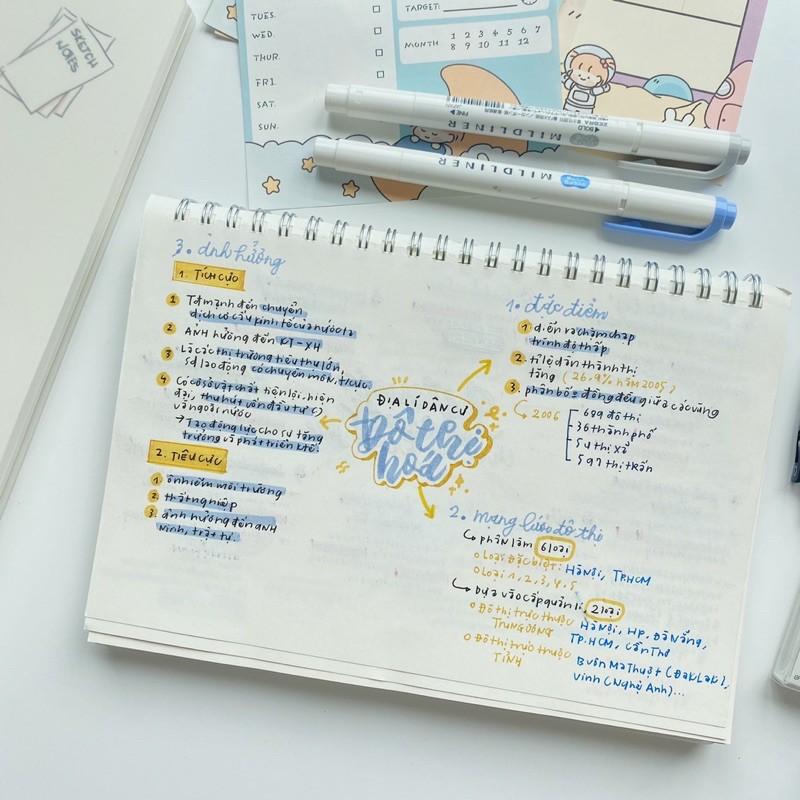 SKETCH
NOTES
TUES.
WED.
THUR.
FRI.
SAT.
SUN.
TARGET:
MONTH 1 2 3 4 5 6 7
8 9 10 11 12
FINE
BOLD ▶
MILDLINER
MILDLINER
3. ảnh hưởng
1. TÍCH CỰC
1 Tđ mạnh đến chuyển
dịch cơ cấu kinh tế của nước ta
2 Ảnh hưởng đến KT-XH
3 Là các thị trường tiêu thụ lớn,
sd lao động có chuyên môn, t/cực
4 Có cơ sở vật chất tiện lợi, hiện
đại, thu hút vốn đầu tư
và ngoài nước
→ Tạo động lực cho sự tăng
trưởng và phát triển ktế.
2. TIÊU CỰC
1 ônhiễm môi trường
2 thất nghiệp
3. ảnh hưởng đến anh
ninh, trật tự..
ĐỊA LÍ DÂN CƯ
Đô thị
hoá
1. đặc điểm
1 diễn ra chậm chạp
trình độ thấp
2. tỉ lệ dân thành thị
tăng (26,9% năm 2005)
3. phân bố ko đồng đều giữa các vùng
→ 2006
689 đô thị
38 thành phố
54 thị xã
597 thị trấn
2. mạng lưới đô thị
↪ phân làm 6 loại
o Loại Đặc biệt: Hà Nội, TP.HCM
o Loại 1, 2, 3, 4, 5
↪ Dựa vào cấp quản lí, 2 loại
o Đô thị trực thuộc
TRUNG ƯƠNG
Hà Nội, HP, Đà Nẵng,
TP.HCM, Cần Thơ
o Đô thị trực thuộc
TỈNH
Buôn Ma Thuột (Đak Lak),
Vinh (Nghệ An)...